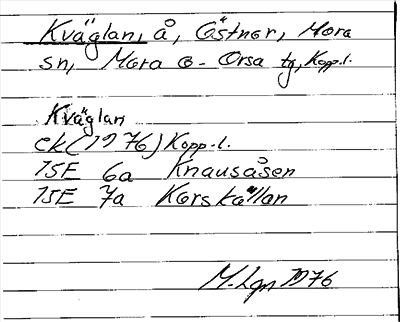 Kvāglan, å, Östnor, Mora
sn, Mora o. Orsa tg, Kopp.l.
Kväglan
ek (1976) Kopp.l.
15E 6a Knausåsen
15E 7a Korskällan
M. Lgn 1976